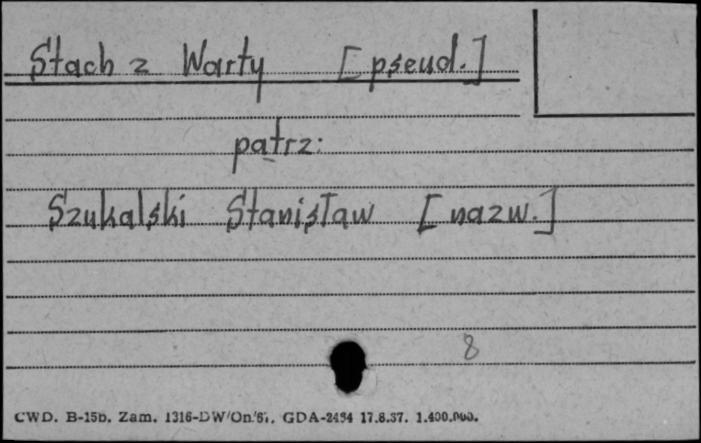 Stach z Warty [pseud.]
patrz:
Szukalski Stanisław [nazw.]
8
CWD. B-15b. Zam. GDA-2494 1.400.000.